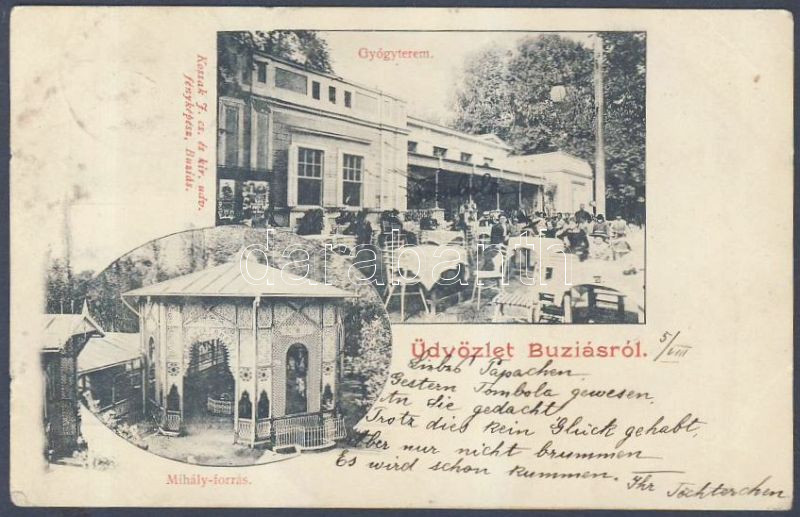 Gyógyterem.
Koszak J. cs. és kir. udv.
fényképész, Buziás.
darabanth
Üdvözlet Buziásról.
5/VIII
Liebes Papachen
Gestern Tombola gewesen,
An Sie gedacht
Trotz dies kein Glück gehabt,
Aber nur nicht brummen
Es wird schon kummen.
Ihr Töchterchen
Mihály-forrás.